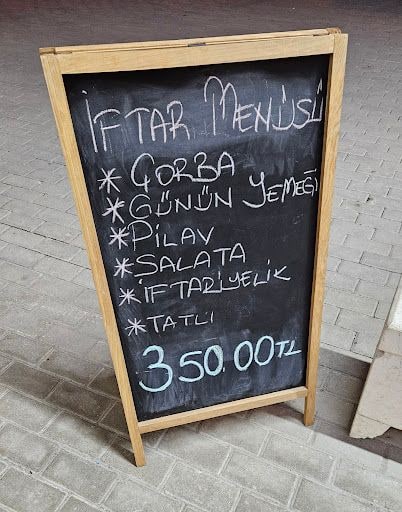 İFTAR MENÜSÜ
* ÇORBA
* GÜNÜN YEMEĞİ
* PİLAV
* SALATA
* İFTARİYELİK
* TATLI
350.00TL